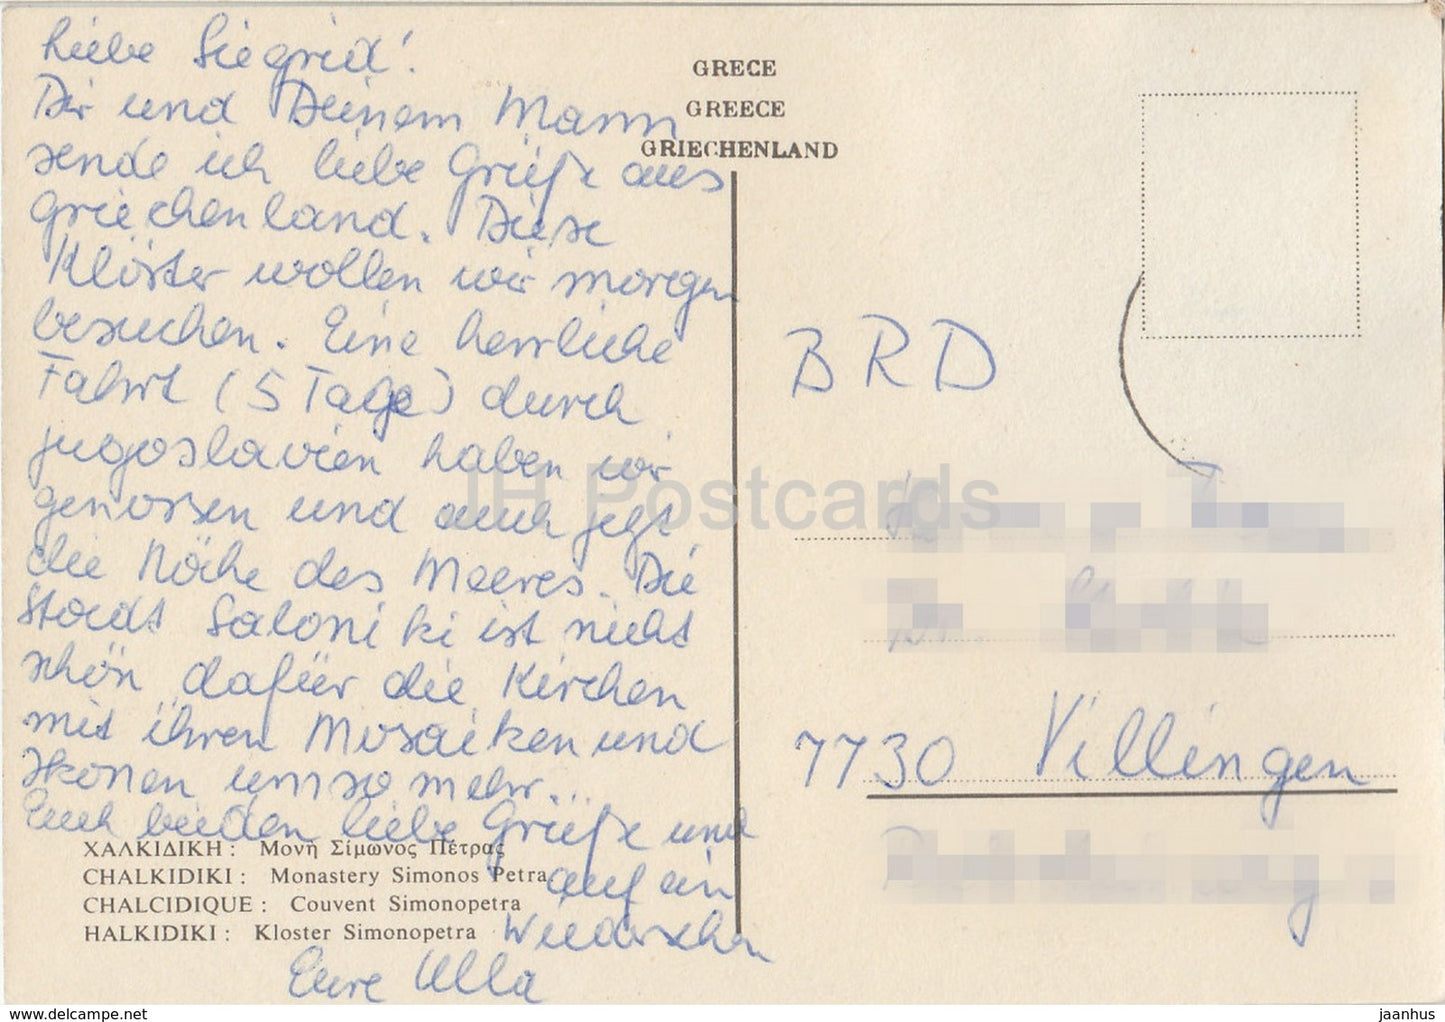 Liebe Siegrid!
Dir und Deinem Mann
sende ich liebe Grüße aus
Griechenland. Diese
Klöster wollen wir morgen
besuchen. Eine herrliche
Fahrt (5 Tage) durch
Jugoslavien haben wir
genossen und auch jetzt
die Nähe des Meeres. Die
Stadt Saloniki ist nicht
schön dafür die Kirchen
mit ihren Mosaiken und
Ikonen um so mehr...
Euch beiden liebe Grüße und
auf ein
Wiedersehen
Eure Ulla
GRECE
GREECE
GRIECHENLAND
ΧΑΛΚΙΔΙΚΗ: Μονή Σίμωνος Πέτρας
CHALKIDIKI: Monastery Simonos Petra
CHALCIDIQUE: Couvent Simonopetra
HALKIDIKI: Kloster Simonopetra
BRD
7730 Villingen
JH Postcards
www.delcampe.net
jaanhus